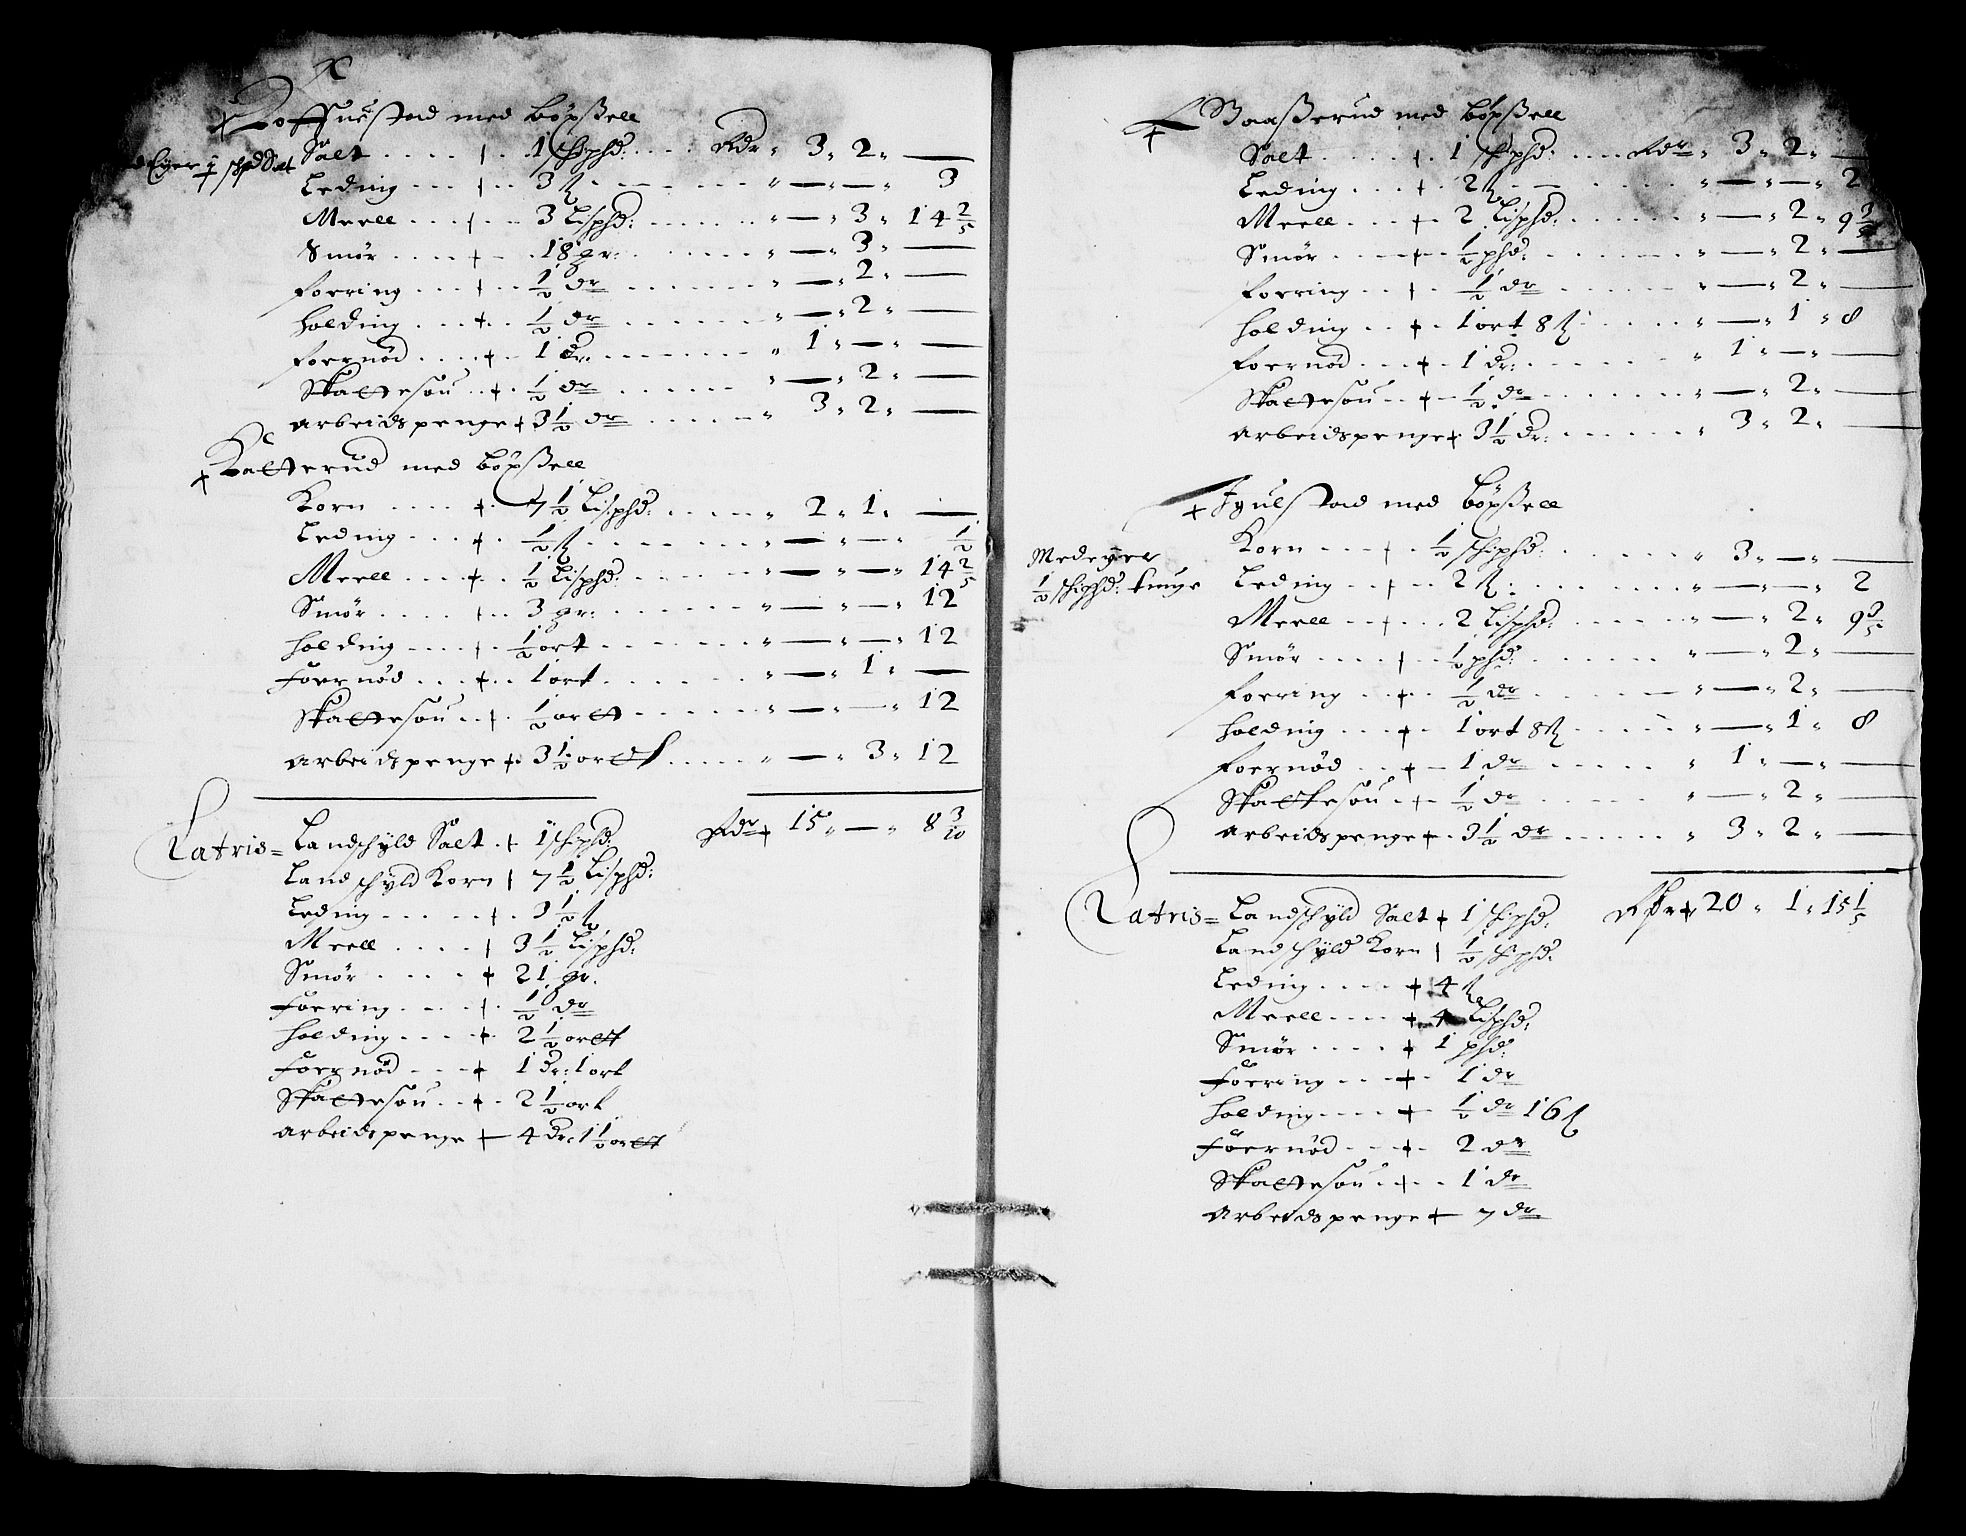 Hoffuestad med böxßell
Eger ½ shpd Salt
Salt . . . . + . 1 skiphd: . . . Rdr „ 3 „ 2 „ —
Leding . . . + . . 3 ß . . . . „ — „ — „ 3
Meell . . . + . . 3 Lisphd: . . . . „ — „ 3 „ 14 2/5
Smør . . . . + . . 18 gr: . . . . „ — „ 3 „ —
foering . . . + . . ½ dr . . . . „ — „ 2 „ —
holding . . . + . . ½ dr . . . . „ — „ 2 „ —
foernød . . . . + . . 1 dr: . . . . „ 1 „ — „ —
Skattesøu . . + . ½ dr . . . . „ — „ 2 „ —
arbeidspenge + 3 ½ dr . . . . „ 3 „ 2 „ —
+ Katterud med böxßell
Korn . . . . + . 7 ½ Lisphd: . . . . „ 2 „ 1 „ —
Leding . . . + . . ½ ß . . . . „ — „ — „ ½
Meell . . . . + . . ½ Lisphd: . . . . „ — „ — „ 14 2/5
Smør . . . . + . . 3 gr: . . . . „ — „ — „ 12
holding . . . + . ½ ort . . . . „ — „ — „ 12
Foernød . . . + . . 1 ort . . . . „ — „ 1 „ —
Skattesøu . . + . ½ ort . . . . „ — „ — „ 12
arbeidspenge + 3 ½ ort . . . . „ — „ 3 „ 12
Latris = Landschyld Salt . + 1 schiphd: Rdr + 15 „ — „ 8 3/10
Landschyld Korn + 7 ½ Lisphd:
Leding . . . . + . 3 ½ ß
Meell . . . . + 3 ½ Lisphd:
Smør . . . . + 21 gr.
Foering . . . + . ½ dr
holding . . . + . 2 ½ ort
Foernød . . . + 1 Dr: 1 ort
Skattesøu . . + . 2 ½ ort
arbeidspenge + 4 Dr: 1 ½ ort
+ Baaßerud med böxßell
Salt . . . . + . 1 skiphd: . . . Rdr „ 3 „ 2 „ —
Leding . . . + . 2 ß . . . . „ — „ — „ 2
Meell . . . + . 2 Lisphd: . . . . „ — „ 2 „ 9 3/5
Smør . . . . + . . ½ phd: . . . . „ — „ 2 „ —
foering . . . + . . ½ dr . . . . „ — „ 2 „ —
holding . . . + . 1 ort 8 ß . . . . „ — „ 1 „ 8
foernød . . . + . 1 dr: . . . . „ 1 „ — „ —
Skattesøu . . + . ½ dr . . . . „ — „ 2 „ —
arbeidspenge + 3 ½ Dr: . . . . „ 3 „ 2 „ —
+ Igulstad med böxßell
Medeyer
½ schiphd: tunge
Korn . . . + . . ½ schiphd: . . . . „ 3 „ — „ —
Leding . . . + . . 2 ß: . . . . „ — „ — „ 2
Meell . . . + . . 2 Lisphd: . . . . „ — „ 2 „ 9 3/5
Smør . . . . + . . ½ phd: . . . . „ — „ 2 „ —
foering . . . + . . ½ dr . . . . „ — „ 2 „ —
holding . . . + . 1 ort 8 ß . . . . „ — „ 1 „ 8
foernød . . . + . 1 dr . . . . „ 1 „ — „ —
Skattesøu . . + . ½ dr . . . . „ — „ 2 „ —
arbeidspenge + . 3 ½ dr . . . . „ 3 „ 2 „ —
Latris = Landschyld Salt + 1 skiphd: Rdr + 20 „ 1 „ 15 1/5
Landschyld Korn + ½ skiphd:
Leding . . . . + 4 ß
Meell . . . . + 4 Lisphd:
Smør . . . . + 1 phd:
Foering . . . + . 1 dr
holding . . . . + . ½ dr 16 ß
Foernød . . . + . 2 dr
Skattesøu . . + . . 1 dr
Arbeidspenge + . 7 dr